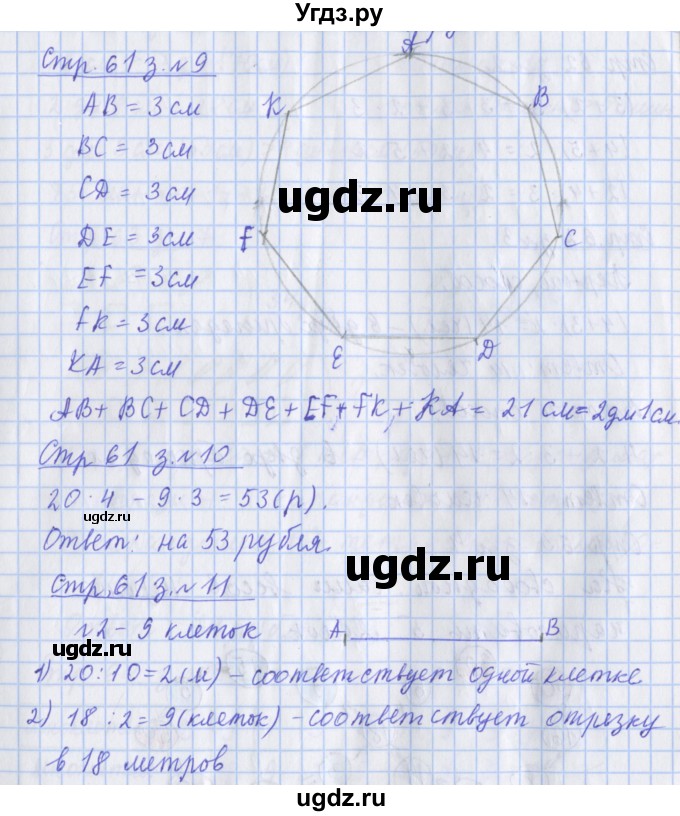 Угдз.ру
Стр. 61 з. №9
A
AB = 3 см
K
B
BC = 3 см
CD = 3 см
ugdz.ru
DE = 3 см
F
C
EF = 3 см
FK = 3 см
KA = 3 см
E
D
AB + BC + CD + DE + EF + FK + KA = 21 см = 2 дм 1 см.
Стр 61 з. №10
20 · 4 - 9 · 3 = 53 (р).
ugdz.ru
Ответ: на 53 рубля.
ugdz.ru
Стр. 61 з. №11
№2 - 9 клеток
A B
ugdz.ru
1) 20 : 10 = 2 (м) - соответствует одной клетке
2) 18 : 2 = 9 (клеток) - соответствует отрезку
в 18 метров
ugdz.ru
ugdz.ru